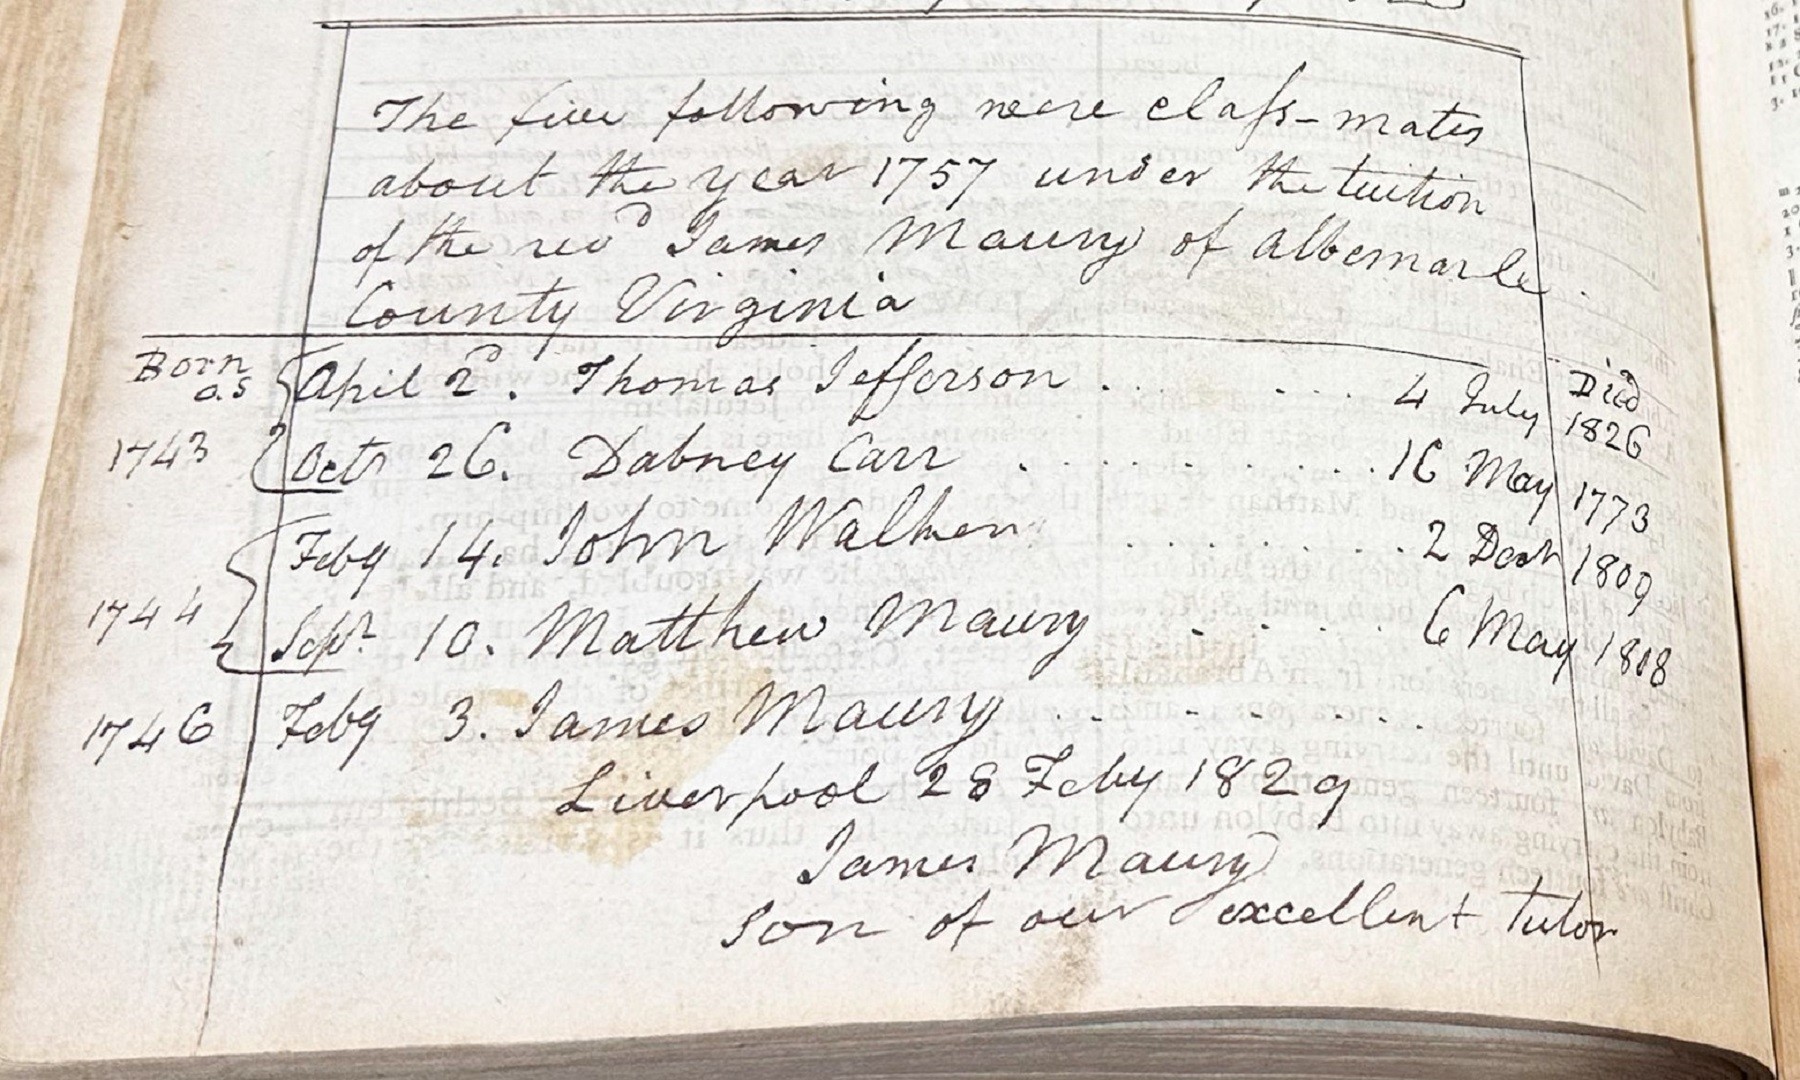 The five following were class-mates
about the year 1757 under the tuition
of the revd James Maury of Albemarle
County Virginia
Born o.s Died
1743 April 2d. Thomas Jefferson . . . . . 4 July 1826
Octr 26. Dabney Carr . . . . . . . . . . 16 May 1773
1744 Feby 14. John Walker . . . . . . . . . 2 Decr 1809
Sepr. 10. Matthew Maury . . . . . 6 May 1808
1746 Feby 3. James Maury . . . . . . . . .
Liverpool 28 Feby 1829
James Maury
son of our excellent tutor